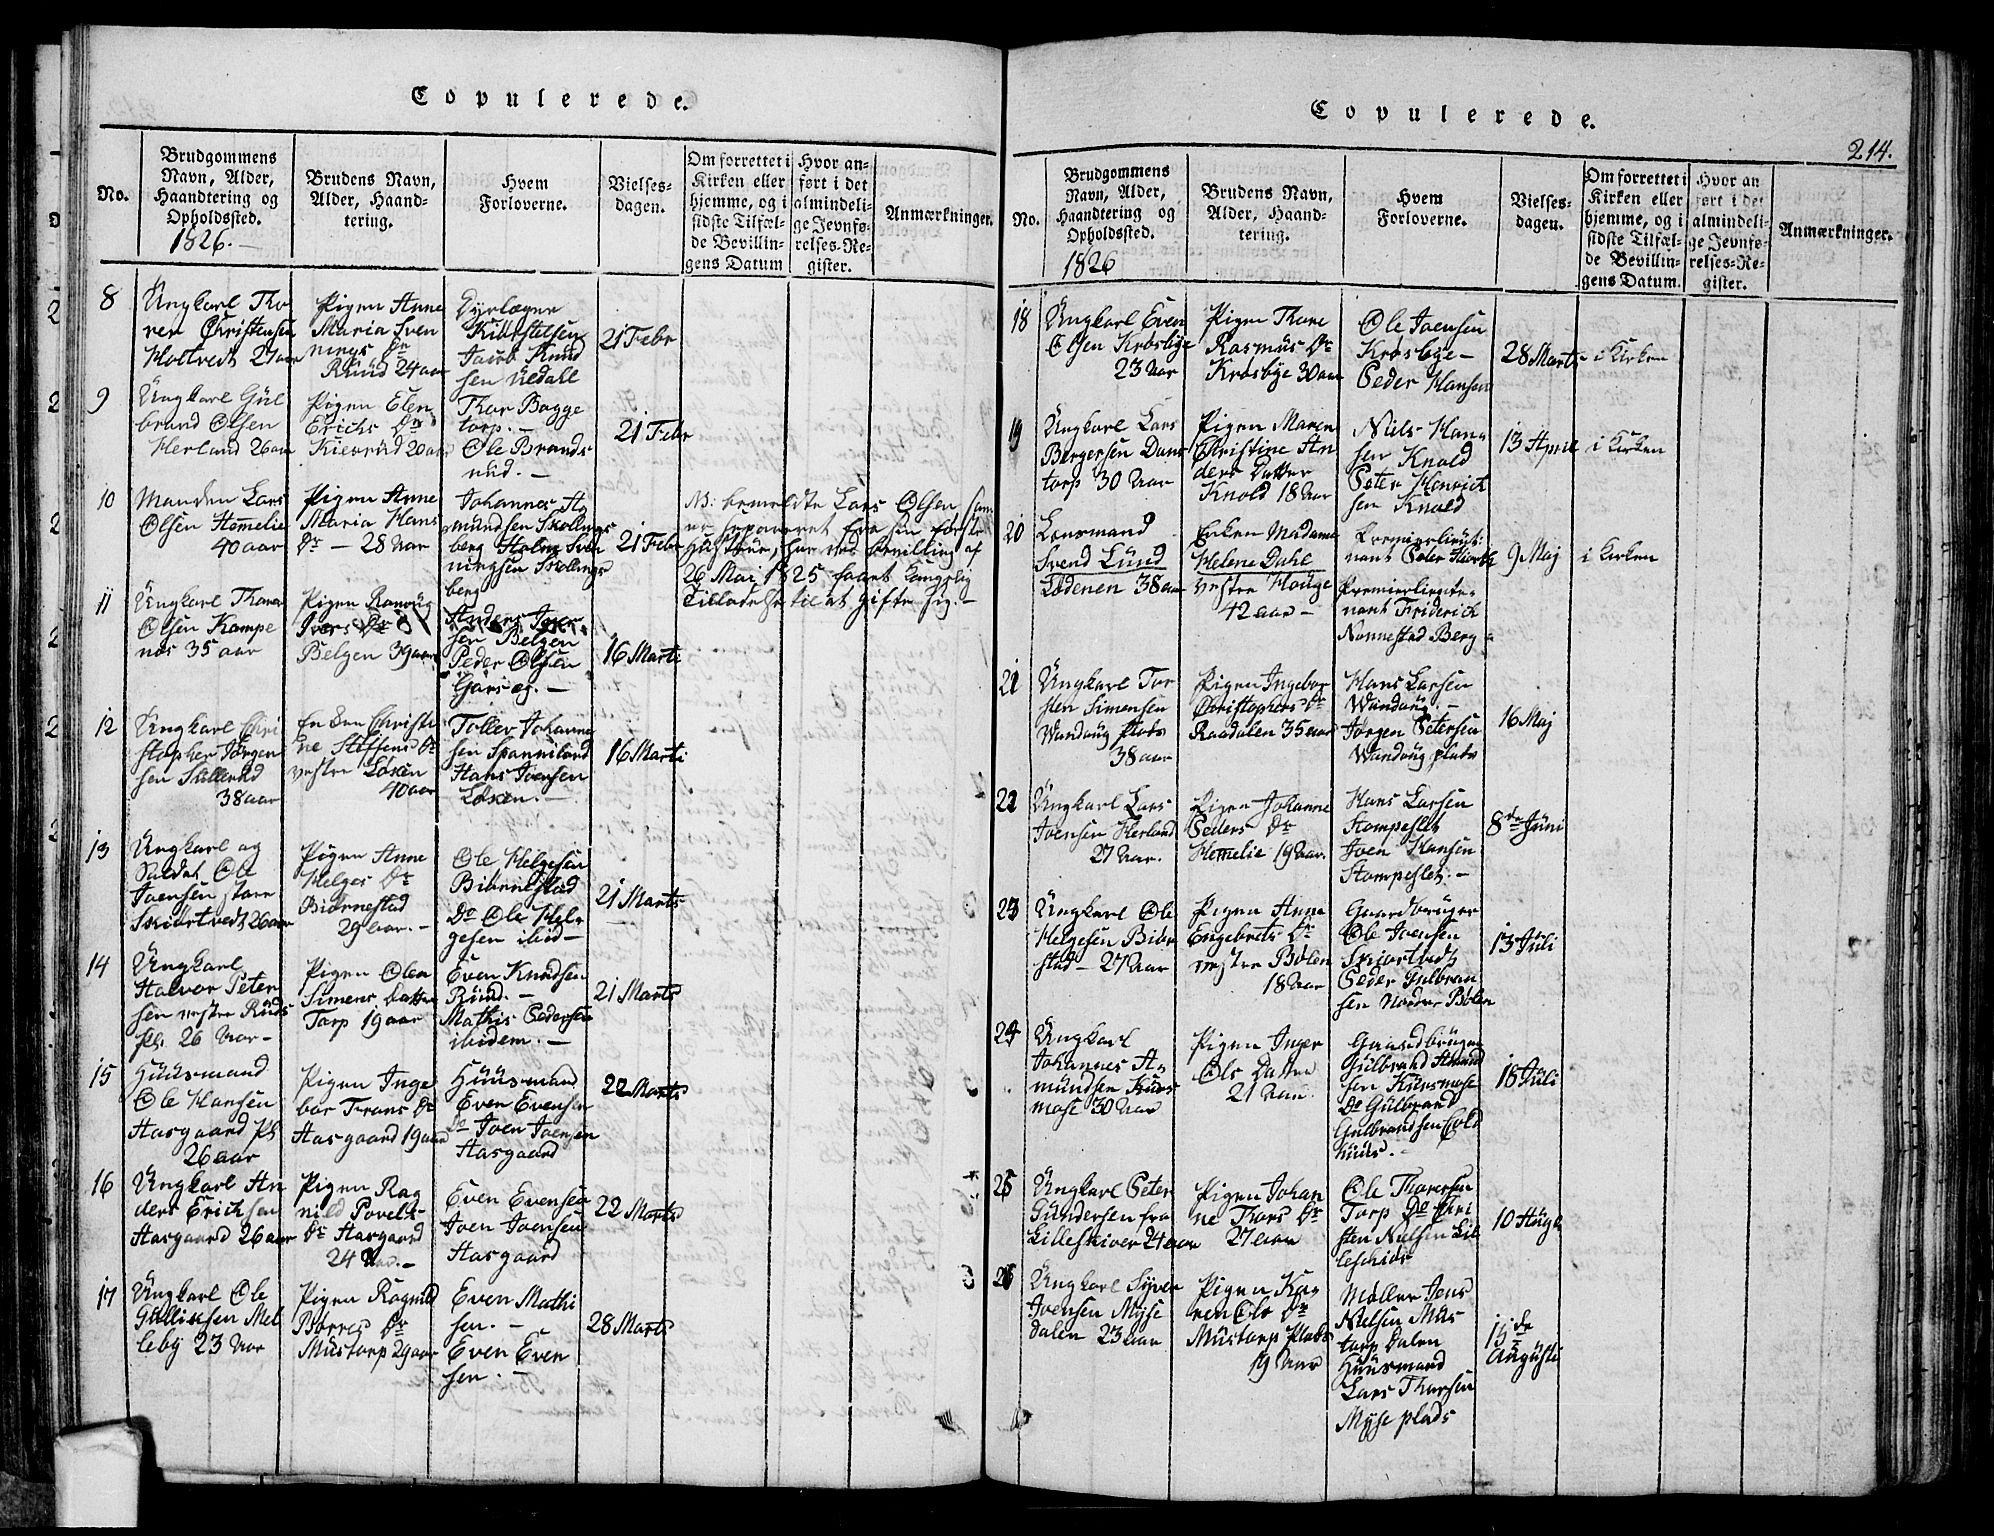 Copulerede.
No.
Brudgommens
Navn, Alder,
Haandtering og
Opholdssted.
1826.
Brudens Navn,
Alder, Haand-
tering.
Hvem
Forloverne.
Vielses-
dagen.
Om forrettet i
Kirken eller
hjemme, og i
sidste Tilfæl-
de Bevillin-
gens Datum
Hvor an-
ført i det
almindeli-
ge Jevnfø-
relses-Re-
gister.
Anmærkninger.
8
Ungkarl Tho
rer Christensen
Holtvedt 27 aar
Pigen Anne
Maria Sven
nings Dr
Ruud 24 aar
Dyrlæger
Jacob Knud
sen
21 Febr
9
Ungkarl Gul
brand Olsen
Herland 26 aar
Pigen Elen
Erichs Dr
Kiesrud 20 aar
Thor Bagge
torp.
Ole Brands
rud.
21 Febr
10
Manden Lars
Olsen Hemelie
40 aar
Pigen Anne
Maria Hans
Dr - 28 Aar
Johannes A
mundsen Skollings
berg Holm Sven
ningsen Skollings
berg
21 Febr
N: bemeldte Lars Olsen som
er separeret fra sin første
Hustrue, har ved bevilling af
26 Mai 1825 faaet Kongelig
Tilladelse til at gifte sig.
11
Ungkarl Thorer
Olsen Kampe
nøs 35 aar
Pigen
Ivers Dr
Belgen 39 aar
Anders Iver
sen Belgen
Peder Olsen
16 Marti
12
Ungkarl Chri
stopher Jørgen
sen Skillerud
38 aar
Enken Christi
ne Stiffens Dr
vestre Løken
40 aar
Tollev Johanne
sen Spannilond
Hans Joensen
Løken.
16 Marti
13
Ungkarl og
Saldat Ole
Joensen store
Skiørtvedt 26 aar
Pigen Anne
Helges Dr
Biørnestad
29 aar.
Ole Helgesen
Biørnestad
Do Ole Hel
gesen ibid
21 Marts
14
Ungkarl
Halvor Peter
sen vestre Ruds
pl. 26 Aar
Pigen Olea
Simens Datter
Torp 19 aar
Even Knudsen
Ruud.
Mathis Pedersen
ibidem.
21 Marts
15
Huusmand
Ole Hansen
Aasgaard Pl
26 aar
Pigen Inge
bor Frans Dr
Aasgaard 19 aar
Huusmand
Even Evensen
Do Joen Joensen
Aasgaard
22 Marts
16
Ungkarl An
ders Erichsen
Aasgaard 26 aar
Pigen Rag
nild Povels
Dr Aasgaard
24 Aar.
Even Evensen
Joen Joensen
Aasgaard
22 Marts
17
Ungkarl Ole
Gulliksen Mel
leby 23 Aar
Pigen Ragnild
Borres Dr
Mustorp 29 aar
Even Mathi
sen.
Even Even
sen.
28 Marts
Copulerede.
214.
No.
Brudgommens
Navn, Alder,
Haandtering og
Opholdssted.
1826
Brudens Navn,
Alder, Haand-
tering.
Hvem
Forloverne.
Vielses-
dagen.
Om forrettet i
Kirken eller
hjemme, og i
sidste Tilfæl-
de Bevillin-
gens Datum.
Hvor an
ført i det
almindeli-
ge Jevnfø-
relses-Re-
gister.
Anmærkninger.
18
Ungkarl Even
Olsen Krosbye
23 Aar
Pigen Thore
Rasmus Dr
Krosbye 30 aar
Ole Joensen
Krosbye
Peder Hansen
28 Marts
i Kirken
19
Ungkarl Lars
Borgersen Dans
torp 30 Aar
Pigen Maren
Christine An
ders Datter
Knold 18 Aar
Niels Han
sen Knold
Peter Henrich
sen Knold
13 April
i Kirken
20
Lensmand
Svend Lund
Lødenen 38 aar
Enken Madame
Helene Dahl
vestre Houge
42 aar
Premierlieut:
nant Peter
Premierlieute-
nant Friderich
Nannestad Berg
9 Maj
i Kirken
21
Ungkarl Tor
sten Simensen
Wandoug Plads
38 aar
Pigen Ingebor
Christophers Dr
Raadalen 35 aar
Hans Larsen
Wandoug.
Jørgen Petersen
Wandoug plads
16 Maj
22
Ungkarl Lars
Joensen Herland
27 Aar.
Pigen Johanne
Peders Dr
Hemelie 19 Aar.
Hans Larsen
Stompeslet
Joen Hansen
Stompeslet.
8de Juni
23
Ungkarl Ole
Helgesen Biør
stad - 27 Aar
Pigen Anne
Engebrets Dr
vestre Bølen
18 Aar
Gaardbruger
Ole Joensen
Skiørtvedt
Peder Gulbran
sen Nordre Bølen
13 Juli
24
Ungkarl
Johannes A
mundsen Kuus
mose 30 Aar
Pigen Inger
Ols Datter
21 Aar.
Gaardbruger
Gulbrand Amund
sen Kuusmose
Do Gulbrand
Gulbrandsen Eold
huus.
18 Juli
25
Ungkarl Peter
Gundersen fra
Lilleskiver 24 aar
Pigen Johan
ne Thors Dr
27 aar
Ole Thoresen
Torp Do Chri
sten Nielsen Lil
leschiør
10 Aug
26
Ungkarl Syver
Joensen Myse
dalen 23 aar
Pigen Ka
ren Ols Dr
Mustorp Plads
19 Aar
Møller Jens
Nielsen Mus
torp Dalen
Huusmand
Lars Thorsen
Myse plads
15de
Augusti